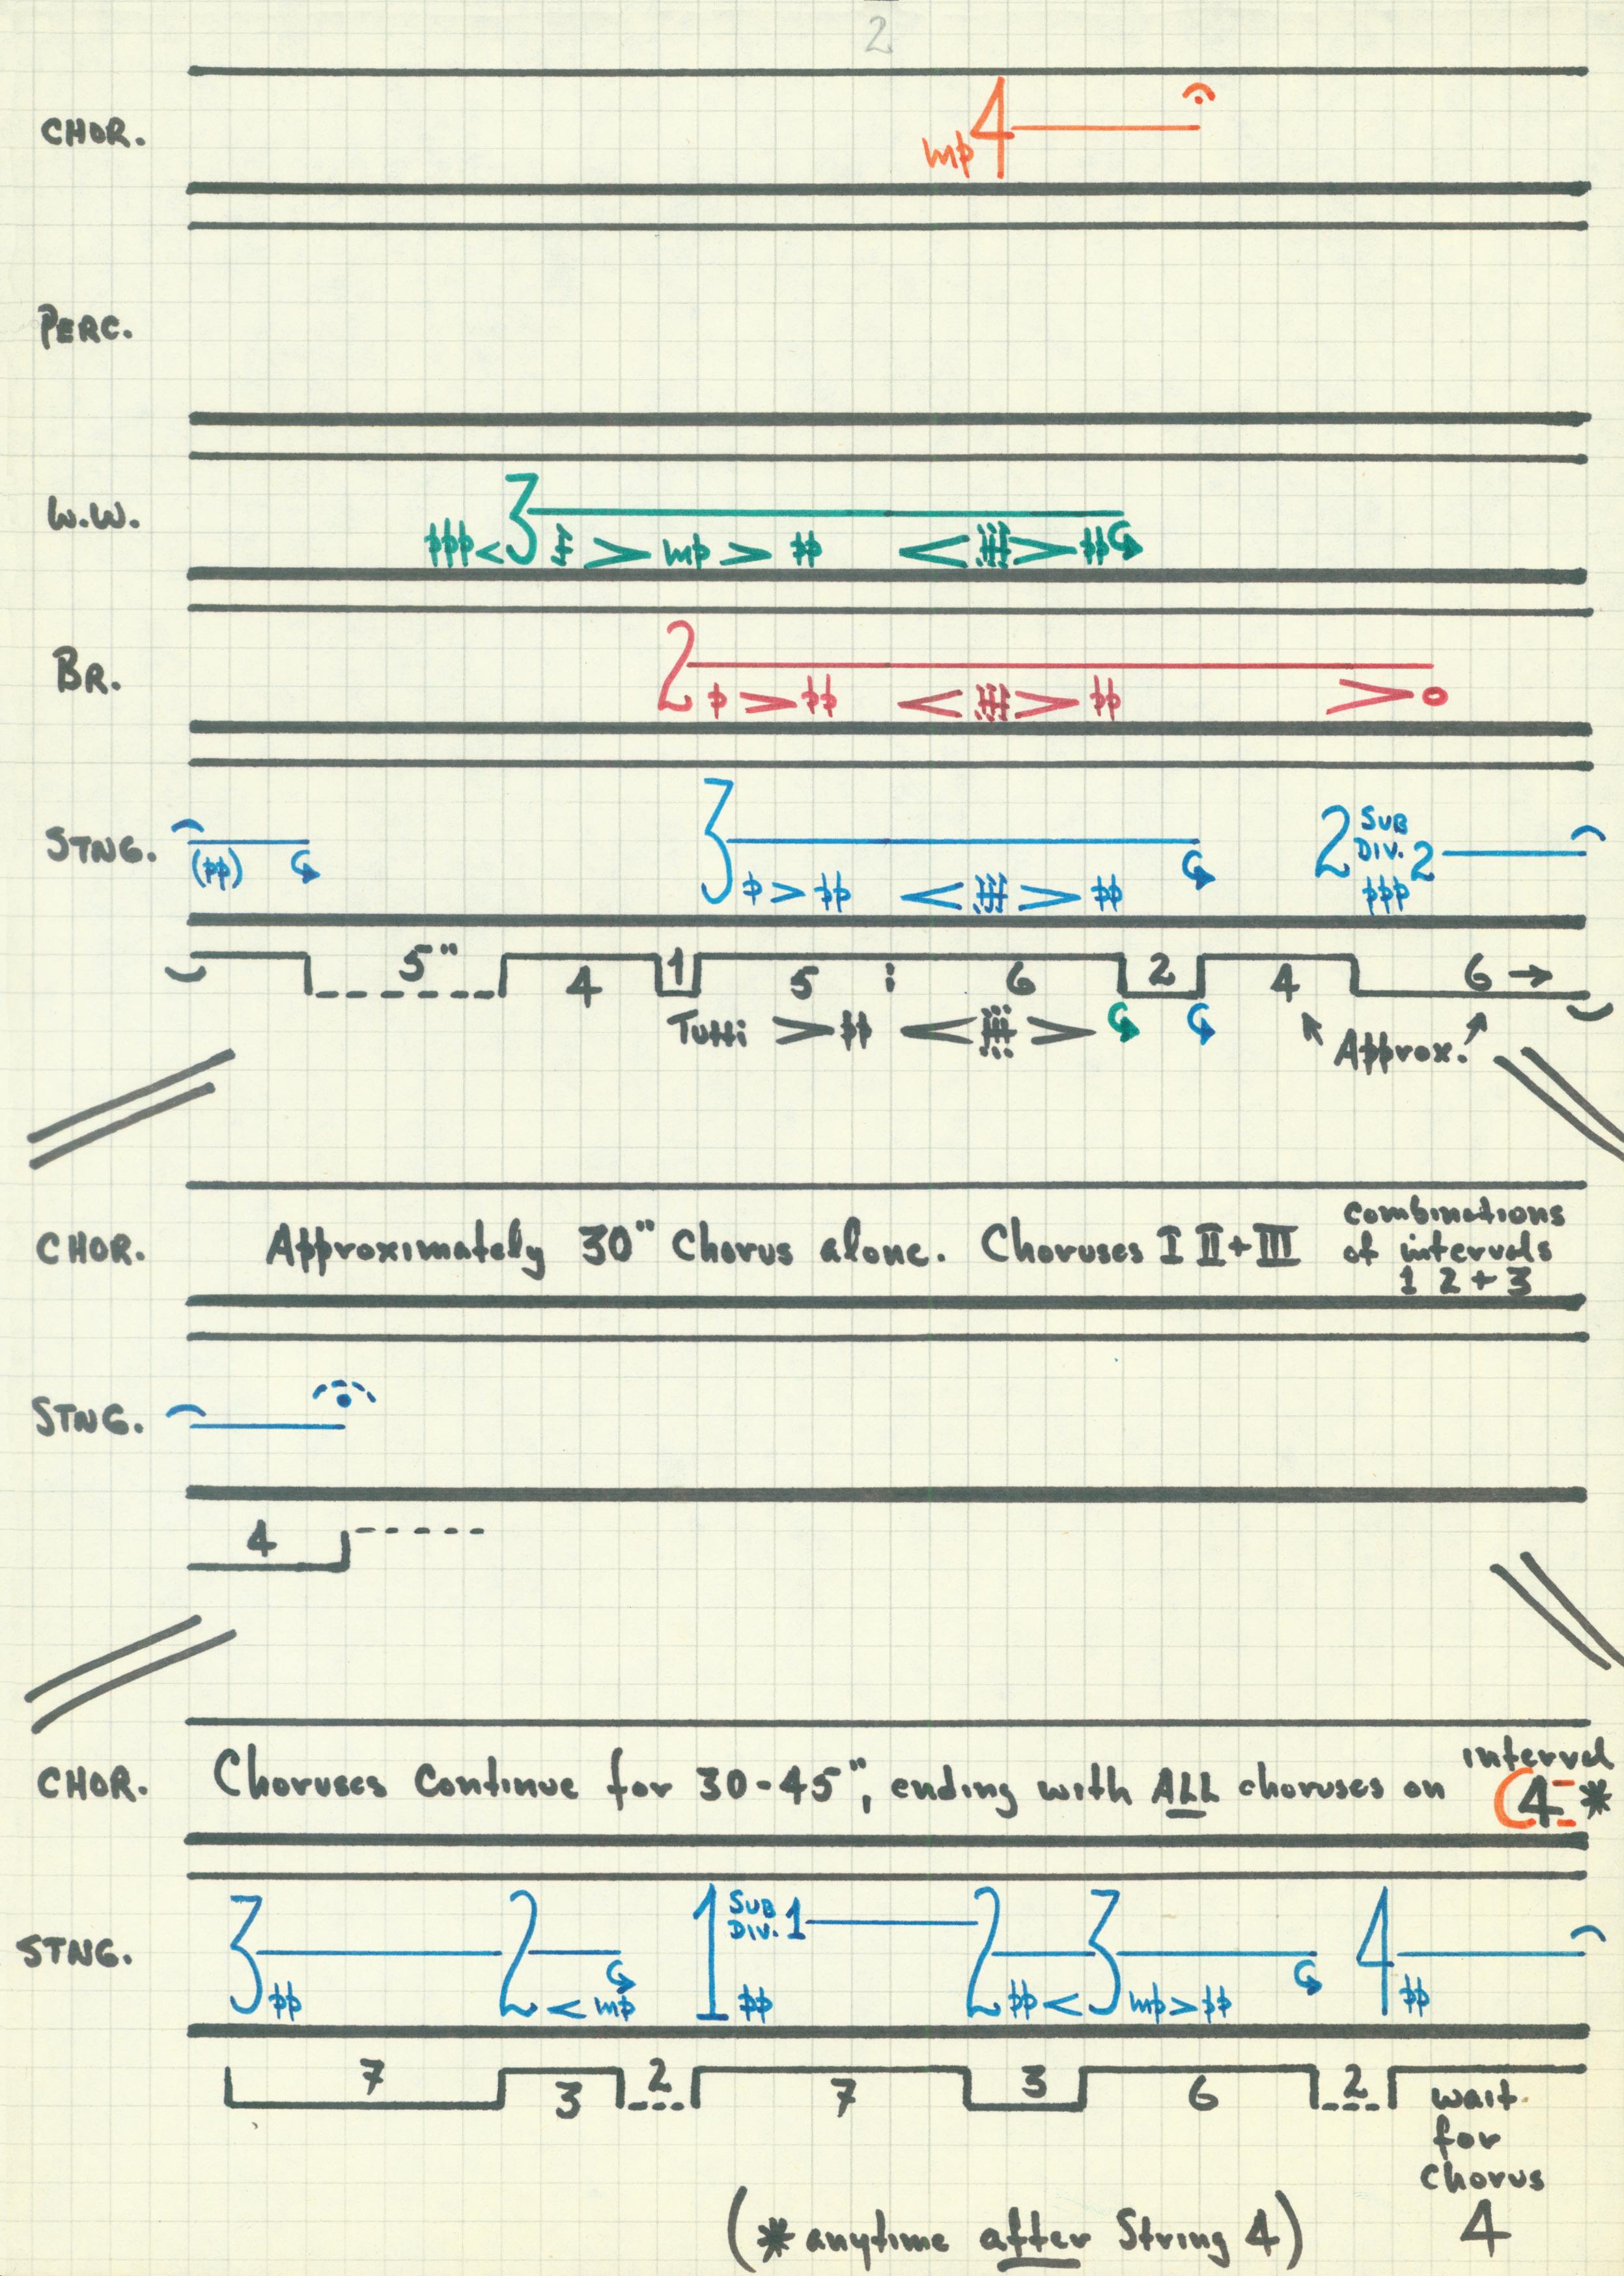 2
CHOR.
mp 4
PERC.
W.W.
ppp < 3 f > mp > pp < fff > pp
BR.
2 p > pp < fff > pp > o
STNG.
(pp) 3 p > pp < fff > pp 2 SUB DIV. 2 ppp
5" 4 1 5 6 2 4 6 →
Tutti > pp < fff >
Approx.
CHOR. Approximately 30" Chorus alone. Choruses I II + III combinations
of intervals
1 2 + 3
STNG.
4
CHOR. Choruses Continue for 30-45", ending with ALL choruses on interval
4 *
STNG. 3 pp 2 < mp 1 SUB DIV. 1 pp 2 pp < 3 mp > pp 4 pp
7 3 2 7 3 6 2 wait
for
chorus
4
(* anytime after String 4)